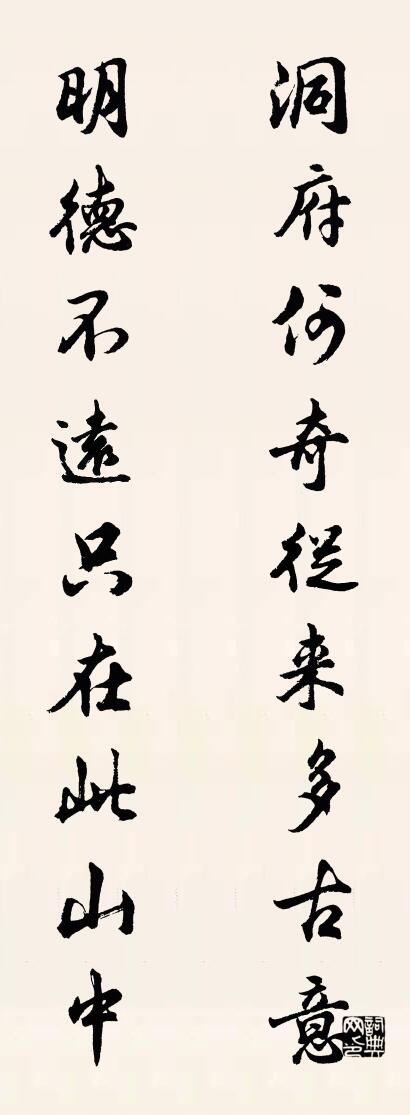 洞府何奇從来多古意
明德不遠只在此山中
詞典网